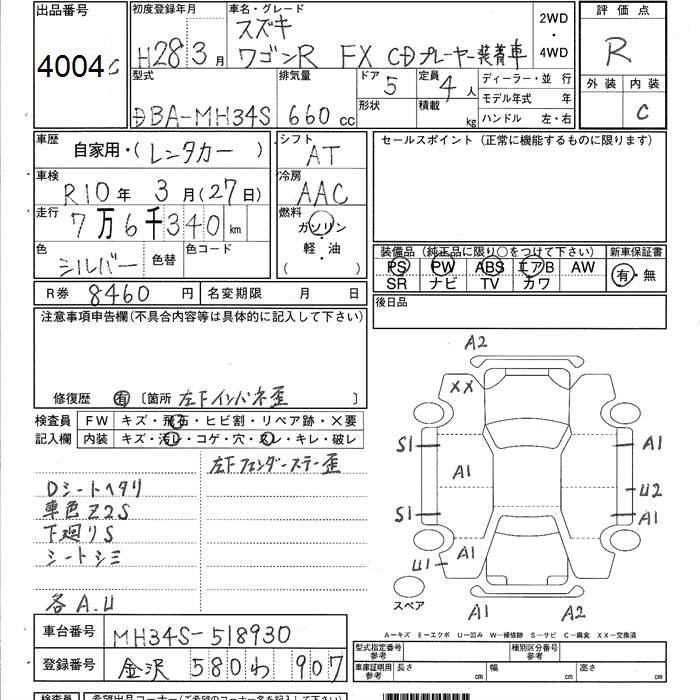 出品番号 4004
初度登録年月 H28 3月
車名・グレード スズキ
ワゴンR FX CDプレーヤー装着車
2WD・4WD
評価点 R
外装 内装 C
型式 DBA-MH34S
排気量 660 cc
ドア 5
形状
定員 4人
積載 kg
ディーラー・並行
モデル年式 年
ハンドル 左・右
車歴 自家用・(レンタカー)
シフト AT
セールスポイント (正常に機能するものに限ります)
車検 R10年 3月(27日)
冷房 AAC
走行 7万6千340 km
燃料 ガソリン・軽・油
( )
色 シルバー 色替 色コード
装備品 (純正品に限り○をつけて下さい) 新車保証書
PS PW ABS エアB AW 有・無
SR ナビ TV カワ
R券 8460 円 名変期限 月 日
後日品
注意事項申告欄(不具合内容等は具体的に記入して下さい)
修復歴 有 〔箇所 左下インパネ歪 〕
検査員 FW キズ・飛石・ヒビ割・リペア跡・X要
記入欄 内装 キズ・汚レ・コゲ・穴・スレ・キレ・破レ
左下フェンダーステー歪
Dシートヘタリ
車色Z2S
下廻りS
シートシミ
各A.U
A2
XX
S1 A1
A1
U2
S1 A1
A1
U1
スペア
A1 A2
A-キズ E-エクボ U-凹み W-補修跡 S-サビ C-腐食 XX-交換済
車台番号 MH34S-518930
登録番号 金沢 580 わ 907
型式指定番号 参考 種別区分番号 参考
車庫証明用 参考 長さ cm 幅 cm 高さ cm
検査員 希望出品コーナー(ご希望のコーナー名を記入下さい)